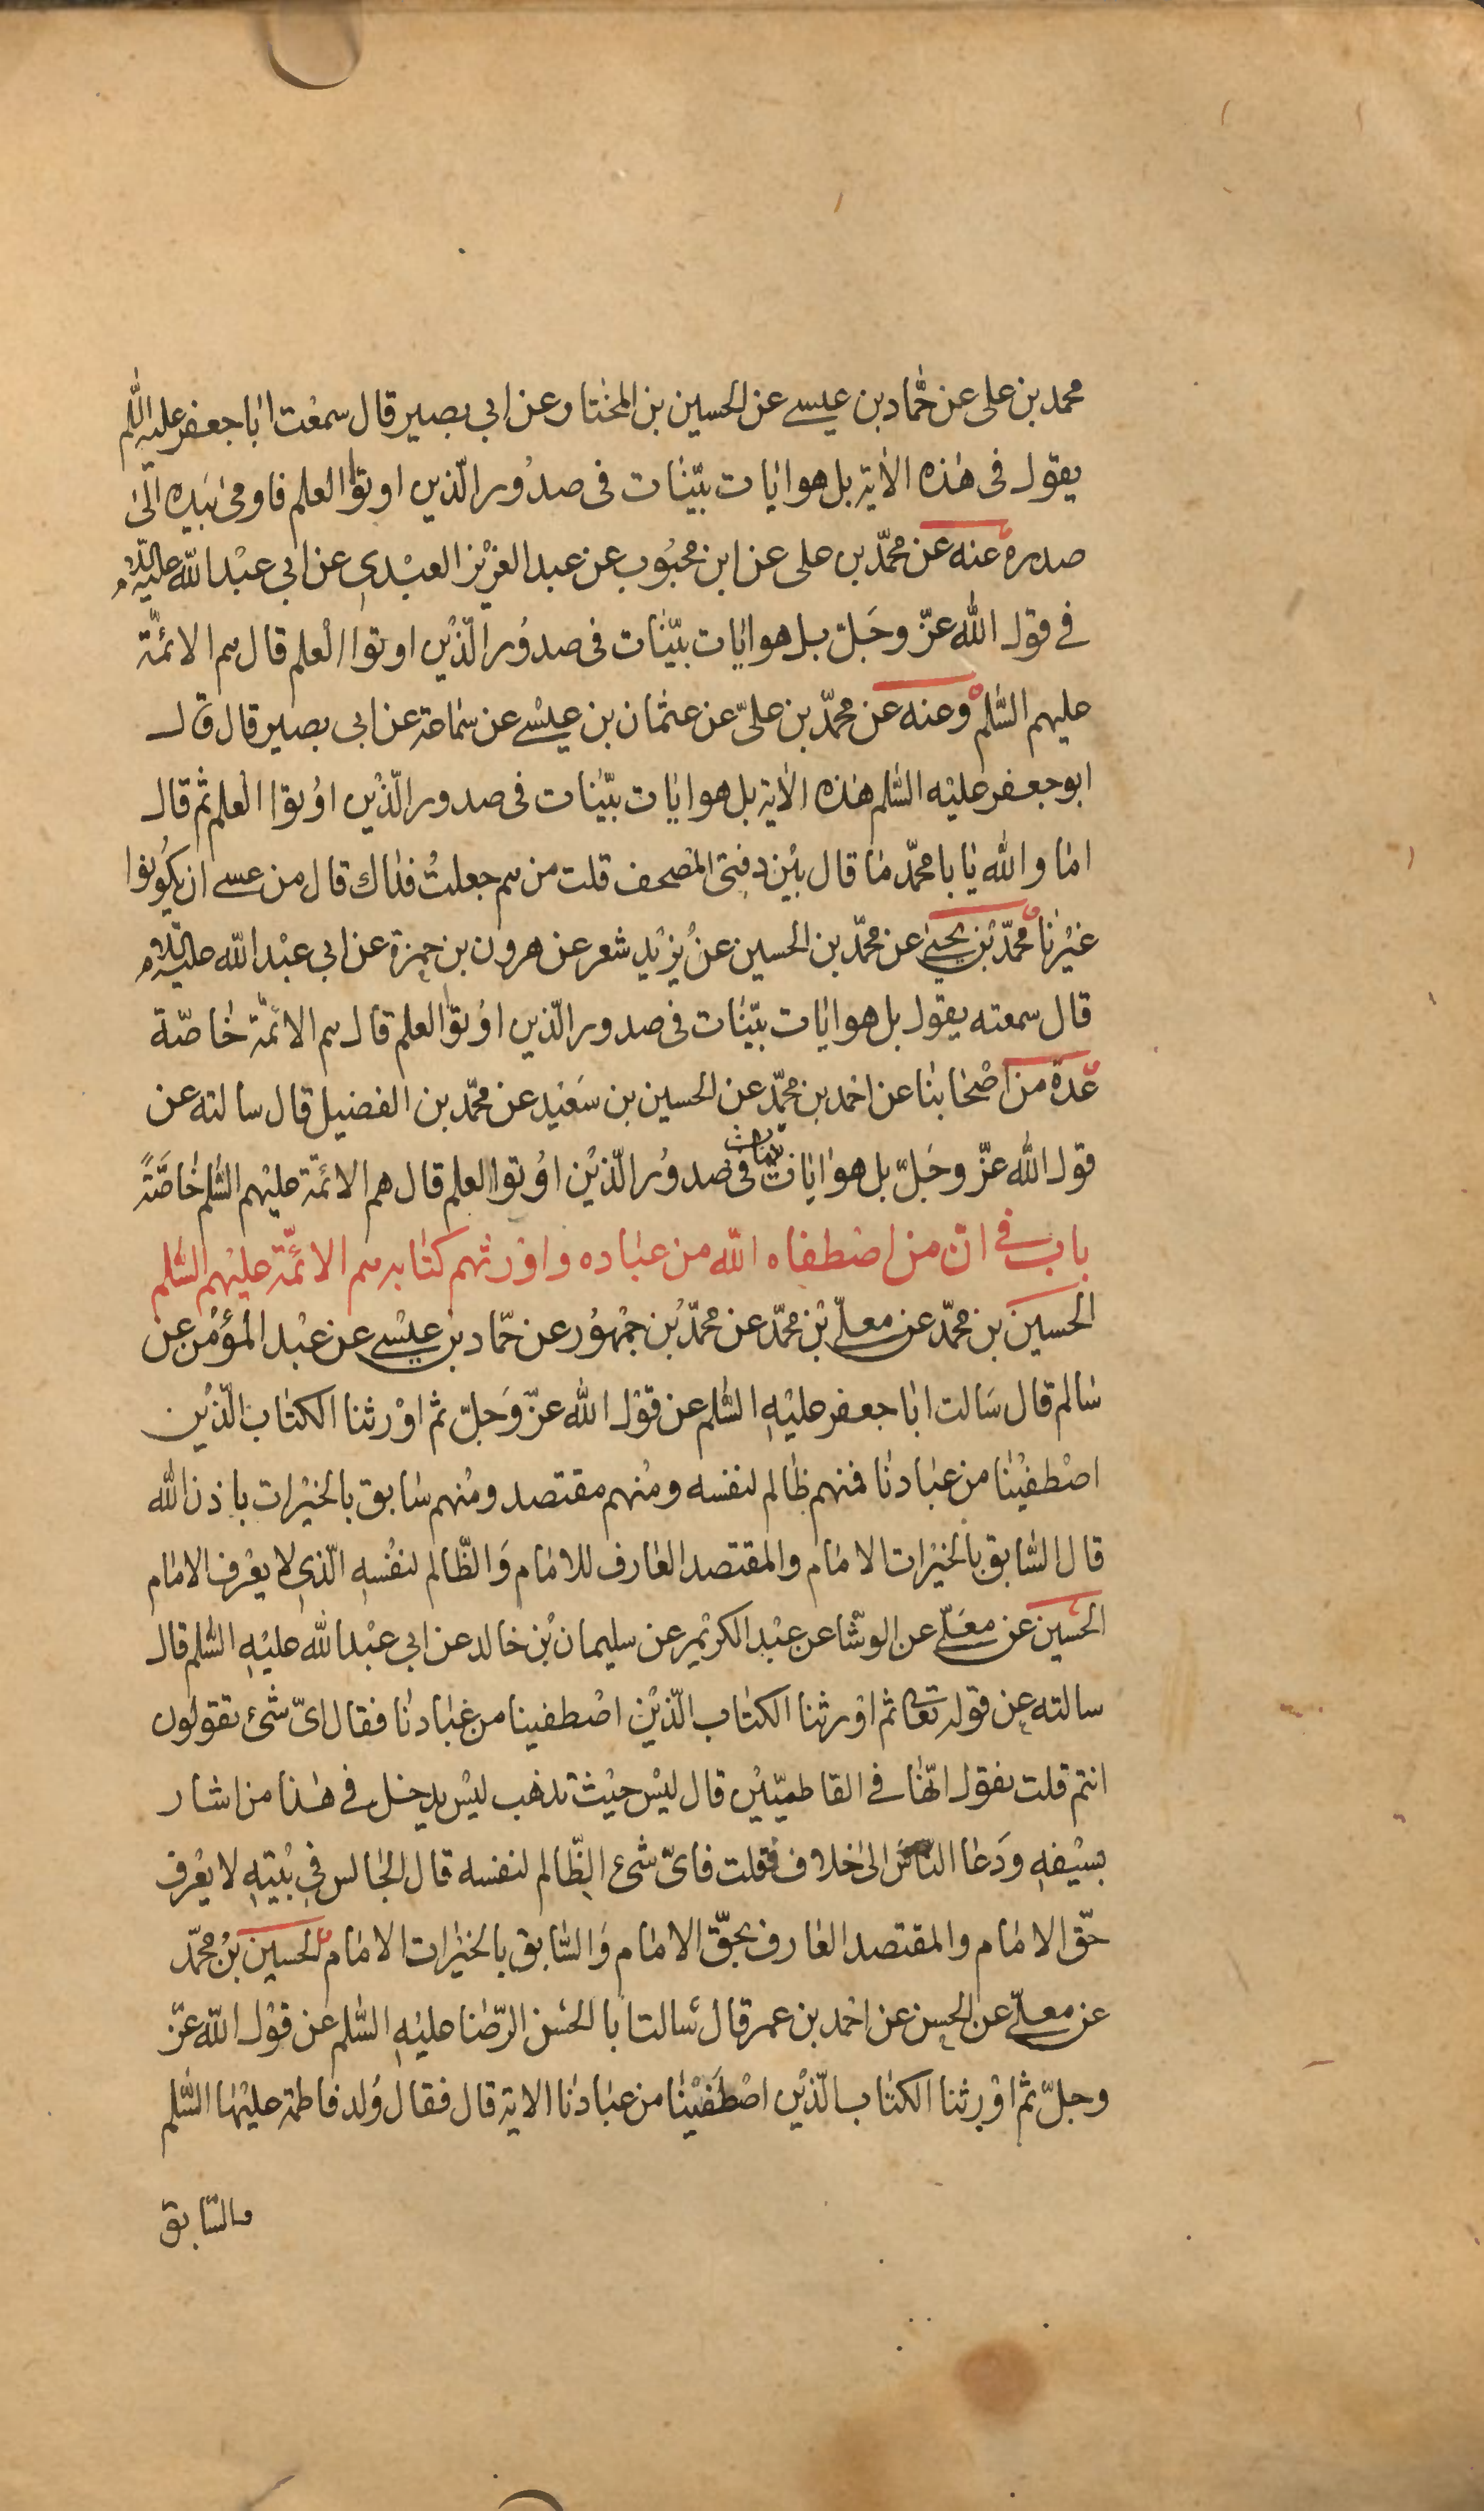 محمد بن على عن حمّاد بن عيسى عن الحسين بن المختار عن ابي بصير قال سمعت ابا جعفر عليه السّلم
يقول فى هٰذه الاٰية بل هو ايٰات بيّنٰات فى صدُور الّذين اوتوا العلم فاومىٰ بيَده الىٰ
صدره عنه عن محمّد بن على عن ابن محبُوب عن عبد العزيْز العبْدي عن ابي عبْد الله عليه السّلام
في قول الله عزّ وجَلّ بل هو ايٰات بيّنٰات فى صدوُر الّذيْن اوتوا الْعلم قال هم الائمّة
عليهم السّلم وعنه عن محمّد بن علىّ عن عثمٰان بن عيسْى عن سمٰاعة عن ابى بصير قال قال
ابو جعفر عليْه السّلم هٰذه الاٰية بل هو ايٰات بيّنٰات فى صدور الّذيْن اوُتوا الْعلم ثم قال
امٰا و الله يٰا با محمّد مٰا قال بيْن دفتى المصْحف قلت من هم جعلتُ فدٰاك قال من عسى ان يكوُنوا
غيْرنٰا محمّد بْن يحيىٰ عن محمّد بن الحسين عن يزيْد شعر عن هرون بن حمزة عن ابي عبْد الله عليه السّلام
قال سمعته يقول بل هو ايٰات بيّنٰات فى صدور الّذين اوُتوا العلم قال هم الائمّة خٰاصّة
عدة من اصْحٰابنٰا عن احْمد بن محمّد عن الحسين بن سَعيْد عن محمّد بن الفضيل قال سالته عن
قول الله عزّ وجَلّ بل هو ايٰات بينات فى صدوُر الّذيْن اوُتوا العلم قال هم الائمّة عليْهم السّلم خٰاصَّةً
باب في انّ من اصْطفاه الله من عبٰاده واوْرثهم كتٰابه هم الائمّة عليْهم السّلم
الحسين بن محمّد عن معلّى بْن محمّد عن محمّد بْن جمْهوُر عن حمّاد بن عيسْى عن عبْد المؤمْن عن
سٰالم قال سَالت ابٰا جعفر عليْهِ السّلم عن قوْل الله عزّ وَجلّ ثم اوْرثنا الكتٰاب الّذيْن
اصْطفيْنٰا من عبٰادنٰا فمنهم ظٰالم لنفسه ومنْهم مقتصد ومنْهم سٰابق بالخيْرات باذن الله
قال السّابق بالخيْرات الامٰام والمقتصد العٰارف للامٰام وَالظّالم لنفْسهِ الّذي لا يعْرف الامٰام
الحسَين عن معَلّى عن الوشّا عن عبْد الكريْم عن سليمان بْن خالد عن ابي عبْد الله عليْهِ السّلم قال
سالته عن قوله تعٰا ثم اوْرثنا الكتٰاب الّذيْن اصْطفينا من عبٰادنٰا فقال اىّ شئ تقولون
انتم قلت نقول انّهٰا في الفاطميّيْن قال ليْس حيْث تذهب ليْس يدخل في هٰذا من اشار
بسيْفهِ وَدَعٰا النّاسَ الىٰ خلاف فقلت فاىّ شئ الظّالم لنفسه قال الجٰالس في بيْتهِ لا يعْرف
حقّ الامٰام والمقتصد العٰارف بحقّ الامٰام وَالسّابق بالخيْرات الامٰام الحسين بْن محمّد
عن معلّى عن الحسن عن احْمد بن عمر قال سَالت ابا الحسَن الرّضٰا عليْهِ السّلم عن قوْل الله عزّ
وجلّ ثم اوْرثنا الكتٰاب الّذيْن اصْطَفيْنٰا من عبٰادنٰا الاية قال فقال وُلد فاطمة عليْها السّلم
والسّابق